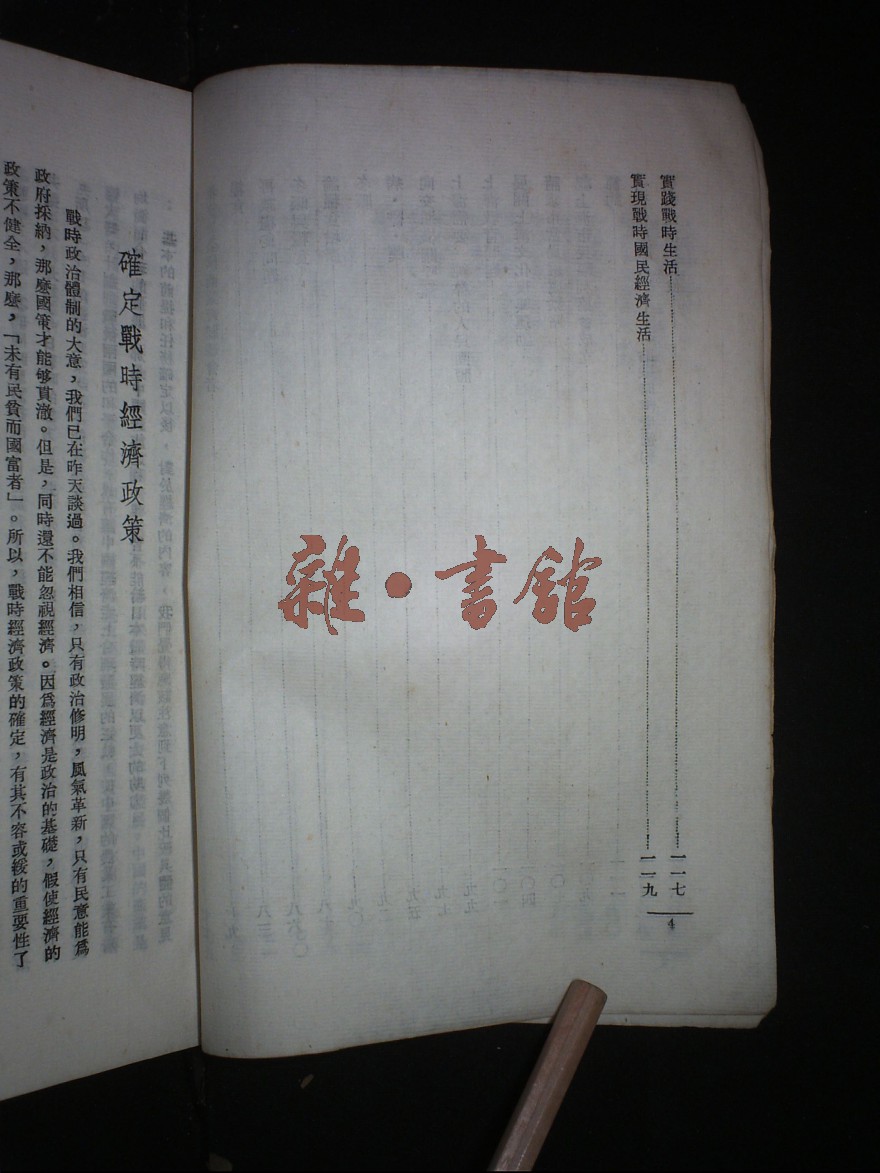 實踐戰時生活……一一七
實現戰時國民經濟生活……一一九
4
確定戰時經濟政策
戰時政治體制的大意，我們已在昨天談過。我們相信，只有政治修明，風氣革新，只有民意能爲
政府採納，那麼國策才能够貫澈。但是，同時還不能忽視經濟。因爲經濟是政治的基礎，假使經濟的
政策不健全，那麼，「未有民貧而國富者」。所以，戰時經濟政策的確定，有其不容或緩的重要性了
雜·書館